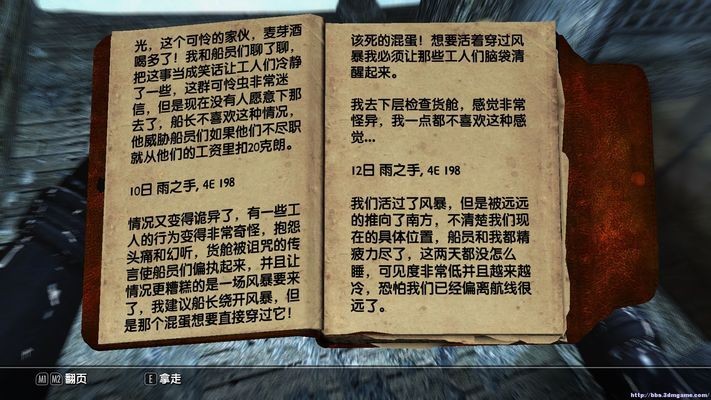 光，这个可怜的家伙，麦芽酒
喝多了！我和船员们聊了聊，
把这事当成笑话让工人们冷静
了一些，这群可怜虫非常迷
信，但是现在没有人愿意下那
去了，船长不喜欢这种情况，
他威胁船员们如果他们不尽职
就从他们的工资里扣20克朗。
10日 雨之手, 4E 198
情况又变得诡异了，有一些工
人的行为变得非常奇怪，抱怨
头痛和幻听，货舱被诅咒的传
言使船员们偏执起来，并且让
情况更糟糕的是一场风暴要来
了，我建议船长绕开风暴，但
是那个混蛋想要直接穿过它！
该死的混蛋！想要活着穿过风
暴我必须让那些工人们脑袋清
醒起来。
我去下层检查货舱，感觉非常
怪异，我一点都不喜欢这种感
觉...
12日 雨之手, 4E 198
我们活过了风暴，但是被远远
的推向了南方，不清楚我们现
在的具体位置，船员和我都精
疲力尽了，这两天都没怎么
睡，可见度非常低并且越来越
冷，恐怕我们已经偏离航线很
远了。
M1 M2 翻页
E 拿走
http://bbs.3dmgame.com/